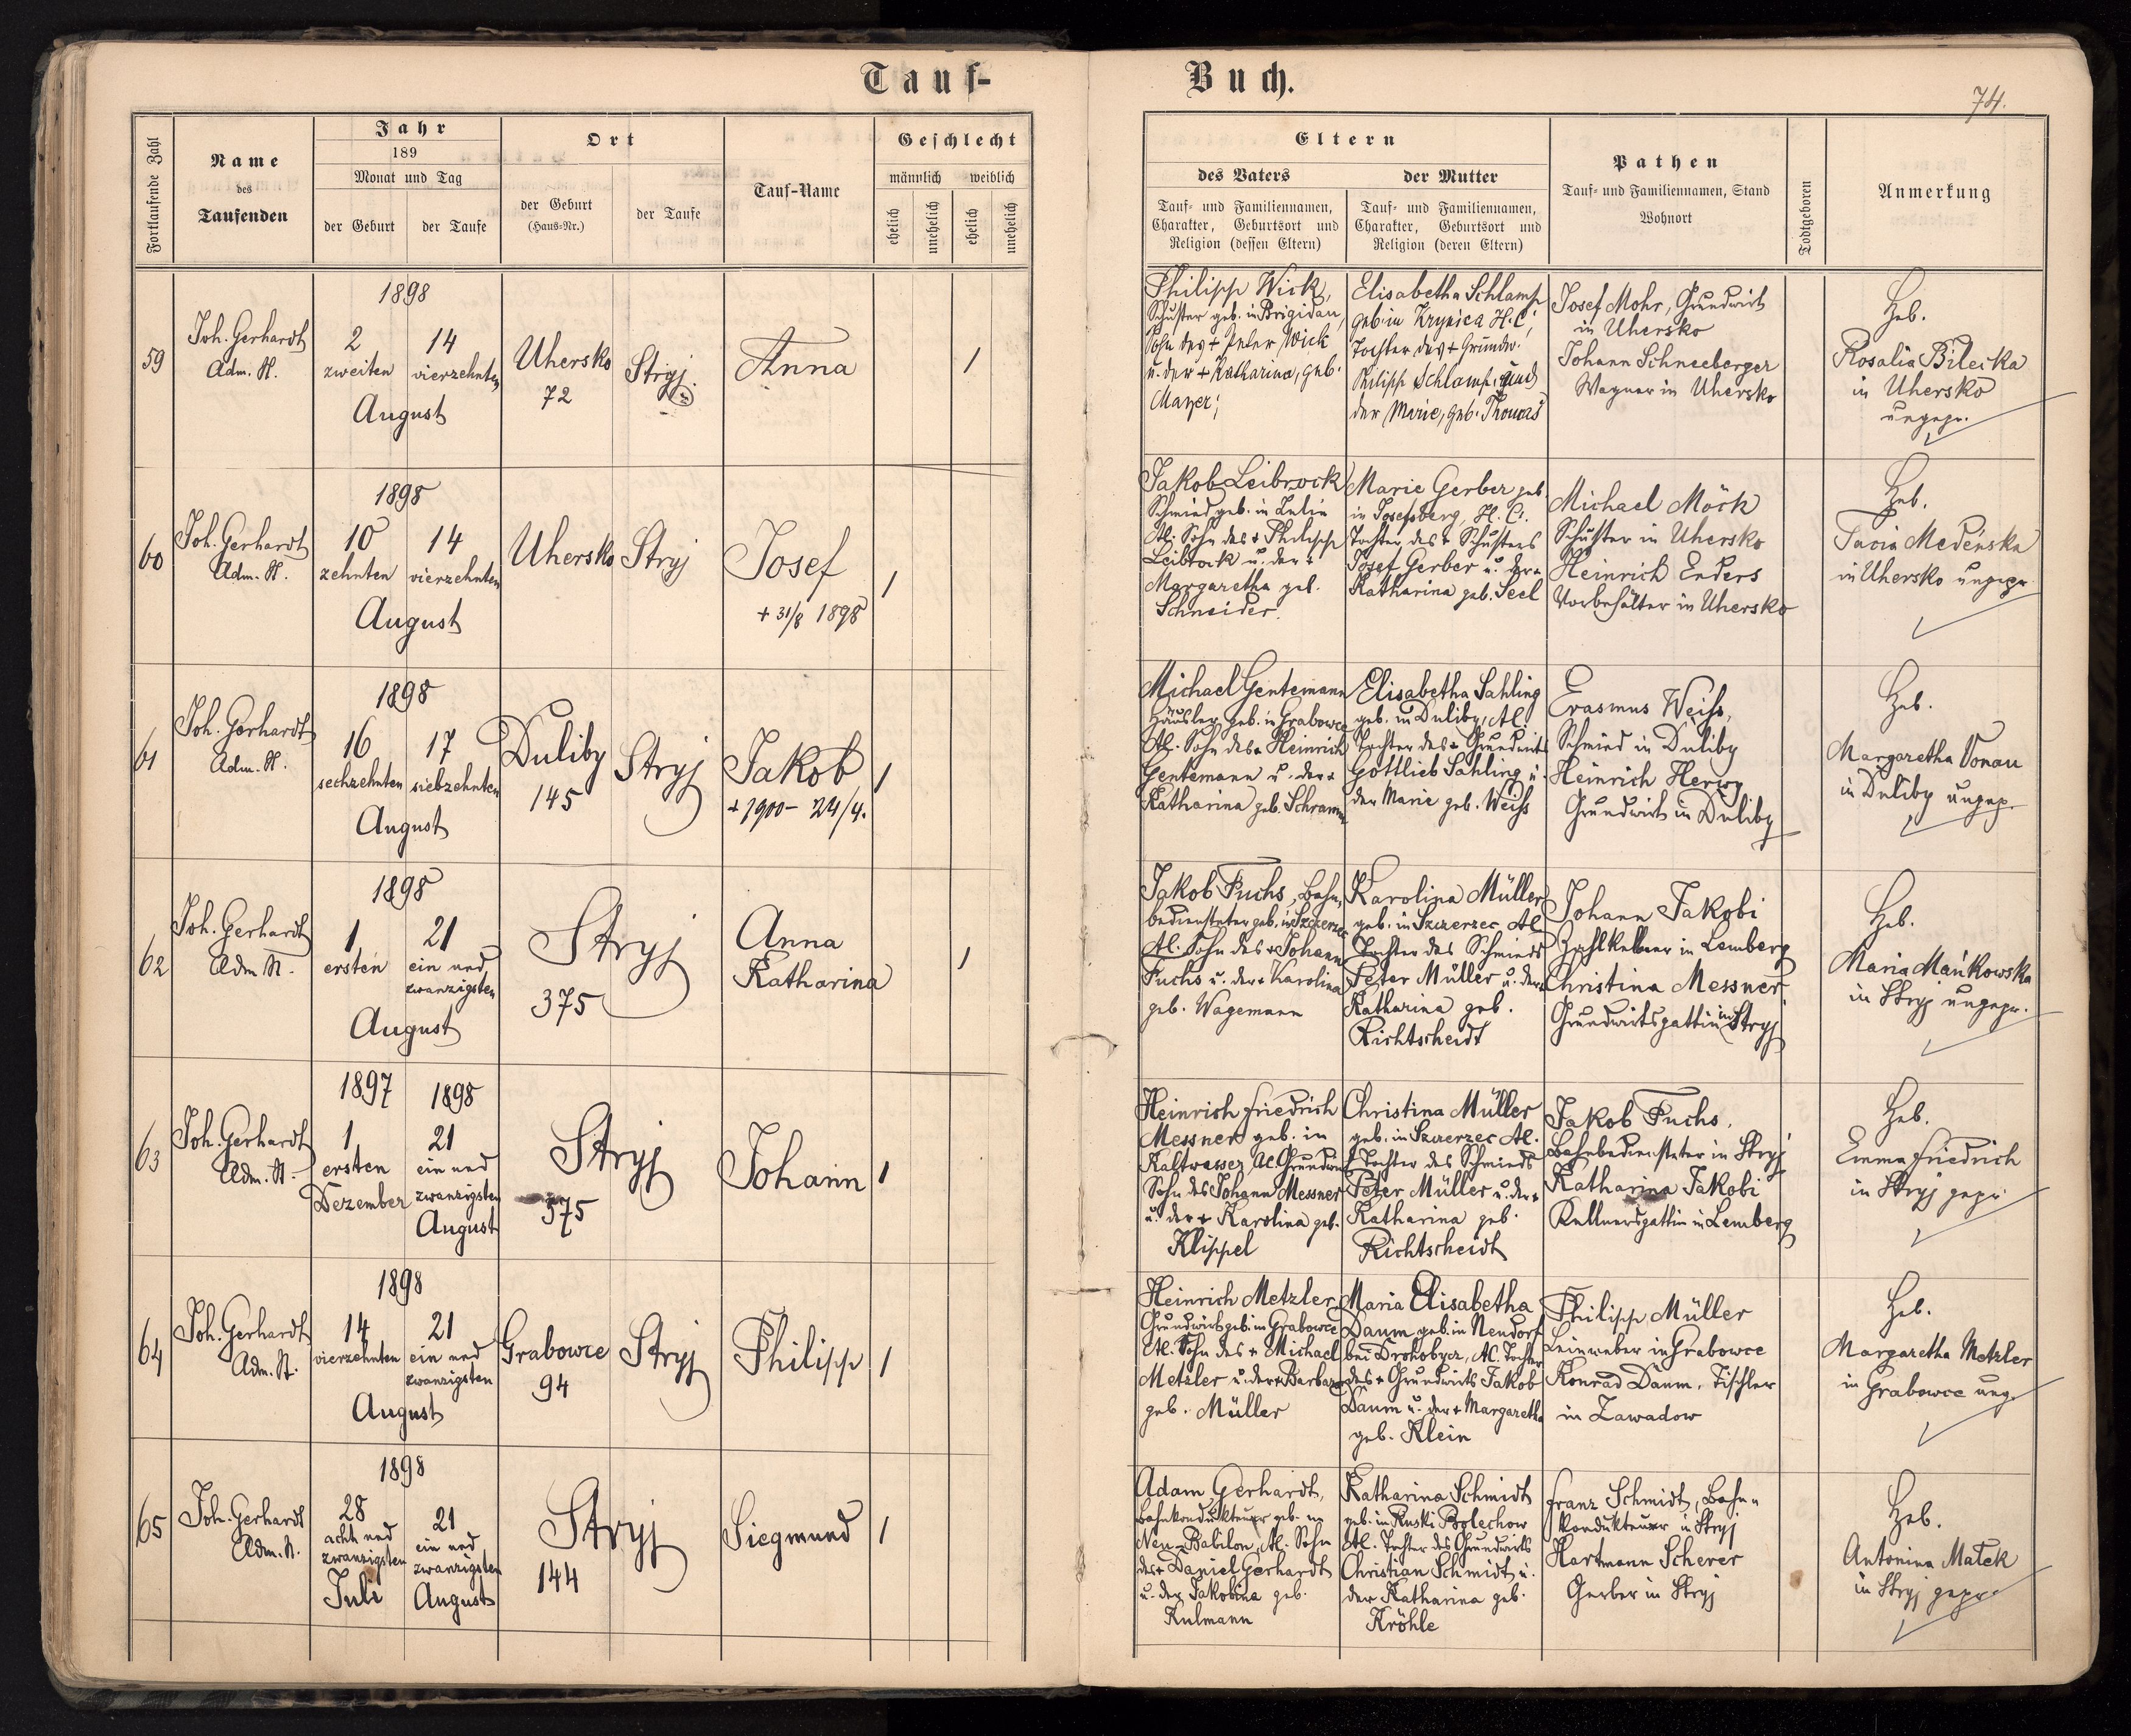 Tauf-
Buch.
74.
Fortlaufende Zahl
Name
des
Taufenden
Jahr
189
Monat und Tag
der Geburt
der Taufe
Ort
der Geburt
(Haus-Nr.)
der Taufe
Tauf-Name
Geschlecht
männlich
weiblich
ehelich
unehelich
ehelich
unehelich
Eltern
des Vaters
Tauf- und Familiennamen,
Charakter, Geburtsort und
Religion (dessen Eltern)
der Mutter
Tauf- und Familiennamen,
Charakter, Geburtsort und
Religion (deren Eltern)
Pathen
Tauf- und Familiennamen, Stand
Wohnort
Todtgeboren
Anmerkung
59
Joh. Gerhardt
Adm. St.
1898
2
zweiten
14
vierzehnten
August
Uhersko
72
Stryj.
Anna
1
Philipp Wick,
Schuster geb. in Brigidau,
Sohn des + Peter Wick
u. der + Katharina, geb.
Mayer;
Elisabetha Schlamp
geb. in Krynica H. C.,
Tochter des + Grundw.
Philipp Schlamp, und
der Marie, geb. Thomas
Josef Mohr, Grundwirt
in Uhersko
Johann Schneeberger
Wagner in Uhersko
Heb.
Rosalia Bilecka
in Uhersko
ungepr.
60
Joh. Gerhardt
Adm. St.
1898
10
zehnten
14
vierzehnten
August
Uhersko
Stryj
Josef
+ 31/8 1898
1
Jakob Leibrock
Schmied geb. in
A. Sohn des + Philipp
Leibrock u. der +
Margaretha geb.
Schneider.
Marie Gerber geb.
in Josefsberg, H. C.
Tochter des + Schusters
Josef Gerber u. der +
Katharina geb. Seel
Michael Möck
Schuster in Uhersko
Heinrich Enders
Vorbehälter in Uhersko
Heb.
Medeńska
in Uhersko ungepr.
61
Joh. Gerhardt
Adm. St.
1898
16
sechzehnten
17
siebzehnten
August
Duliby
145
Stryj
Jakob
+ 1900 - 24/4.
1
Michael Gentemann
Häusler geb. in Grabowce
A. Sohn des + Heinrich
Gentemann u. der +
Katharina geb. Schramm
Elisabetha Sahling
geb. in Duliby, A.
Tochter des + Grundwirts
Gottlieb Sahling u.
der Marie geb. Weiss
Erasmus Weiss,
Schmied in Duliby
Heinrich Herwy
Grundwirt in Duliby
Heb.
Margaretha Vonau
in Duliby ungep.
62
Joh. Gerhardt
Adm. St.
1898
1
ersten
21
ein und
zwanzigsten
August
Stryj
375
Anna
Katharina
1
Jakob Fuchs, Bahn,
bediensteter geb. in Szczerzec
A. Sohn des + Johann
Fuchs u. der + Karolina
geb. Wagemann
Karolina Müller
geb. in Szczerzec A.
Tochter des Schmieds
Peter Müller u. der +
Katharina geb.
Richtscheidt
Johann Jakobi
Zahlkellner in Lemberg
Christina Messner
Grundwirtsgattin in Stryj
Heb.
Maria Mańkowska
in Stryj ungepr.
63
Joh. Gerhardt
Adm. St.
1897
1
ersten
Dezember
1898
21
ein und
zwanzigsten
August
Stryj
375
Johann
1
Heinrich Friedrich
Messner geb. in
Kaltwasser A. Grundwirt
Sohn des Johann Messner
u. der + Karolina geb.
Klippel
Christina Müller
geb. in Szczerzec A.
Tochter des Schmieds
Peter Müller u. der +
Katharina geb.
Richtscheidt
Jakob Fuchs,
Bahnbediensteter in Stryj
Katharina Jakobi
Kellnersgattin in Lemberg
Heb.
Emma Friedrich
in Stryj gepr.
64
Joh. Gerhardt
Adm. St.
1898
14
vierzehnten
21
ein und
zwanzigsten
August
Grabowce
94
Stryj
Philipp
1
Heinrich Metzler
Grundwirt geb. in Grabowce
A. Sohn des + Michael
Metzler u. der + Barbara
geb. Müller
Maria Elisabetha
Daum geb. in Neudorf
bei Drohobycz, A. Tochter
des + Grundwirts Jakob
Daum u. der + Margaretha
geb. Klein
Philipp Müller
Leinweber in Grabowce
Konrad Daum, Tischler
in Zawadow
Heb.
Margaretha Metzler
in Grabowce ung.
65
Joh. Gerhardt
Adm. St.
1898
28
acht und
zwanzigsten
Juli
21
ein und
zwanzigsten
August
Stryj
144
Siegmund
1
Adam Gerhardt,
Bahnkondukteur geb. in
Neu-Babilon, A. Sohn
des + Daniel Gerhardt
u. der Jakobina geb.
Kulmann
Katharina Schmidt
geb. in Ruski Bolechow
A. Tochter des Grundwirts
Christian Schmidt u.
der Katharina geb.
Kröhle
Franz Schmidt, Bahn-
kondukteur in Stryj
Hartmann Scherer
Gerber in Stryj
Heb.
Antonina Małek
in Stryj gepr.